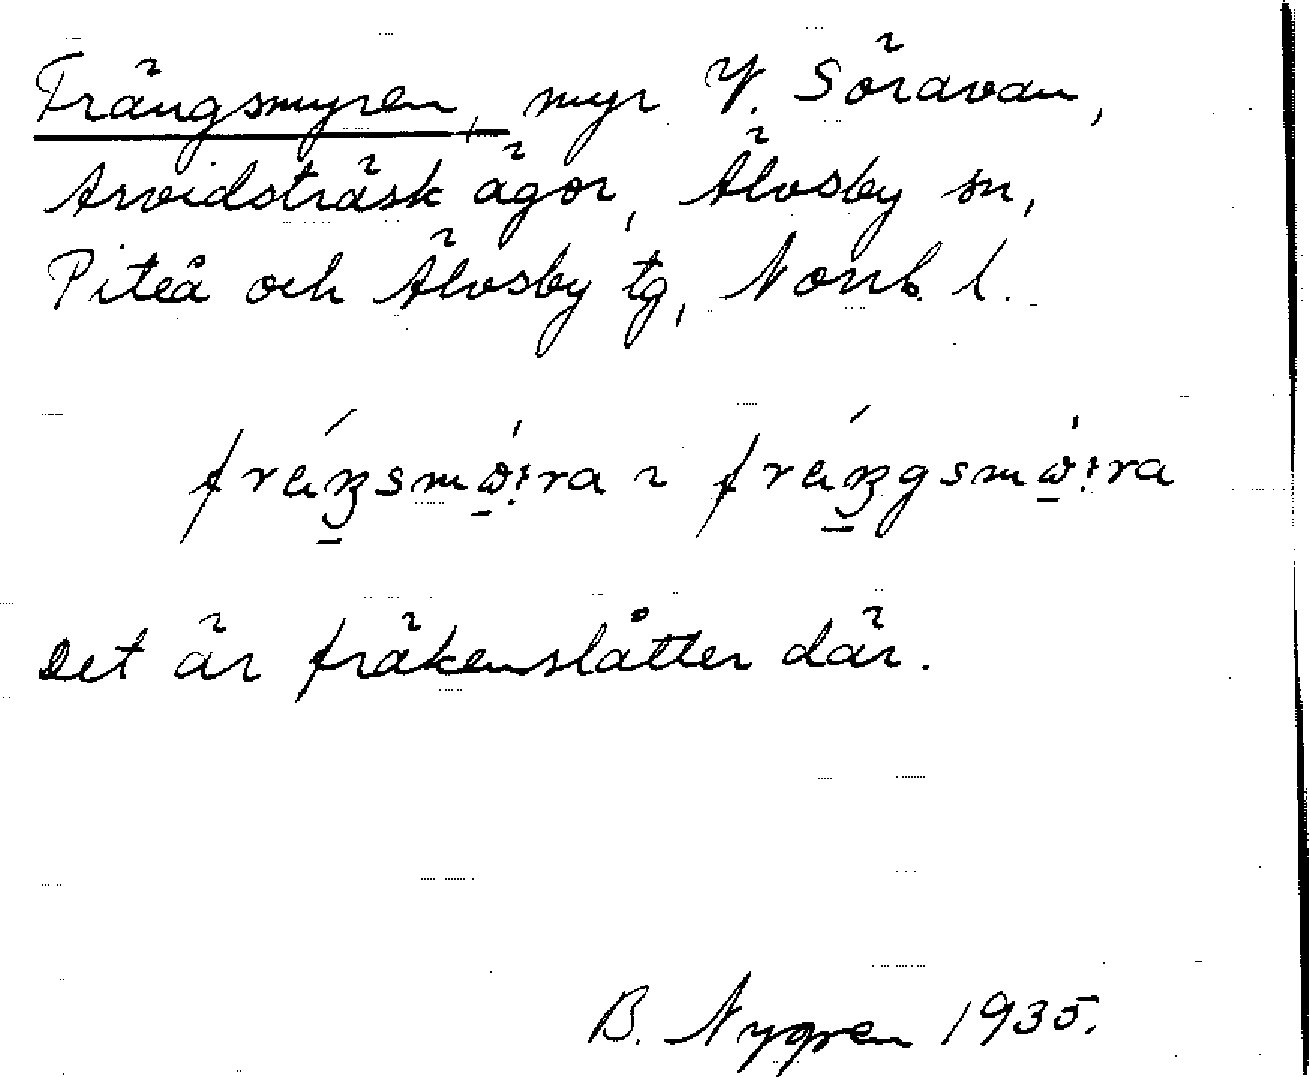 Frängsmyren, myr V. Söravan,
Arvidsträsk ägor, Älvsby sn,
Piteå och Älvsby tg, Norrb. l.
Det är fräkenslåtter där.
B. Nygren 1935.